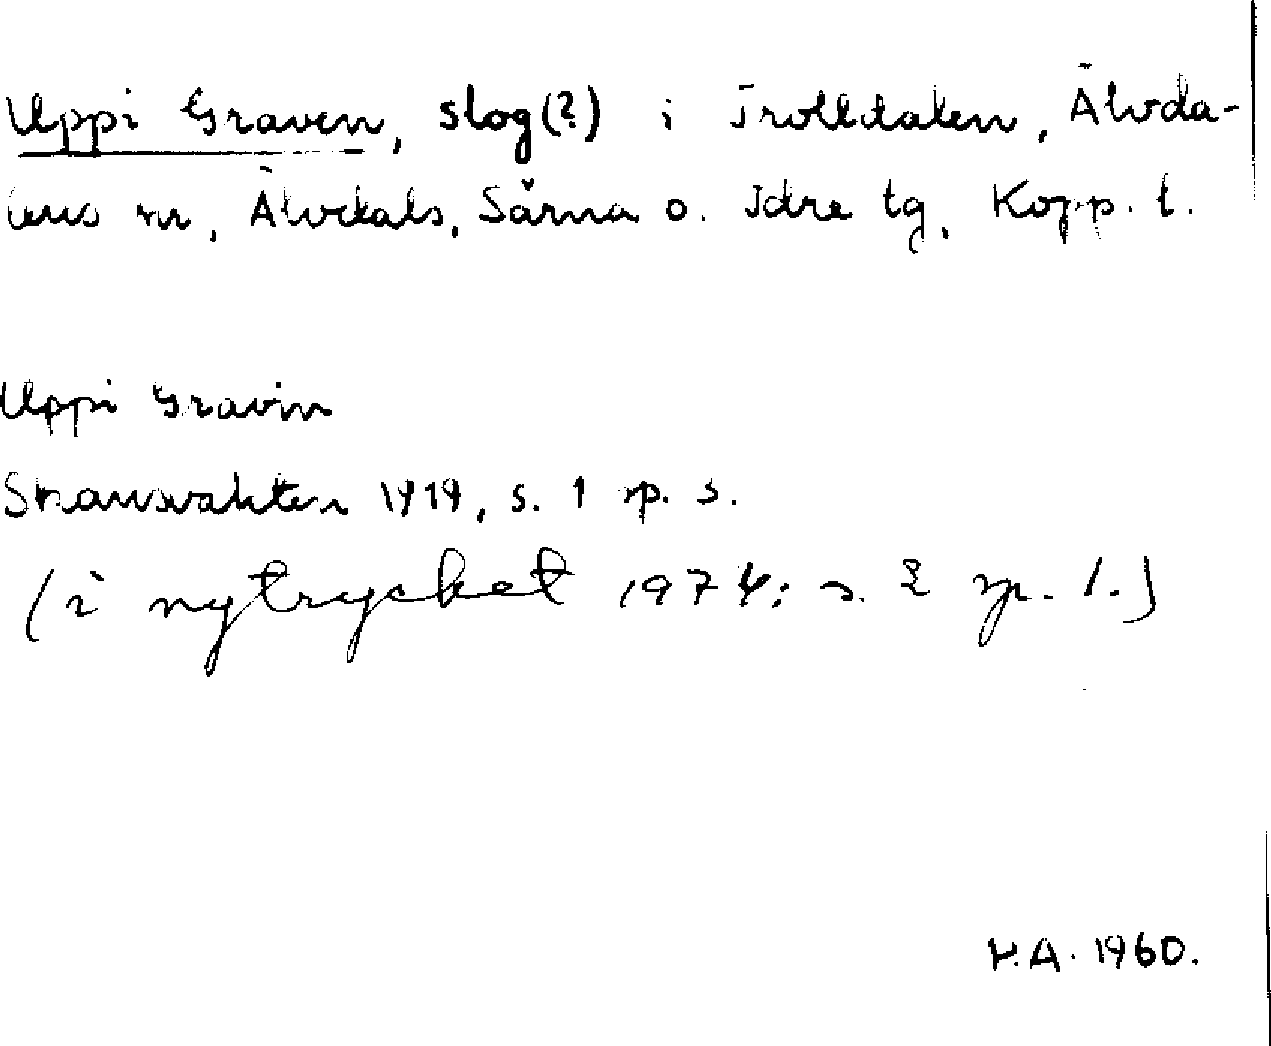 Uppi Graven, slog(?) i Trolldalen, Älvda-
lens sn, Älvdals, Särna o. Idre tg, Kopp. l.
Uppi Gravin
Skansvakten 1919, s. 1 sp. 3.
(i nytrycket 1974: s. 2 sp. 1.)
H.A. 1960.